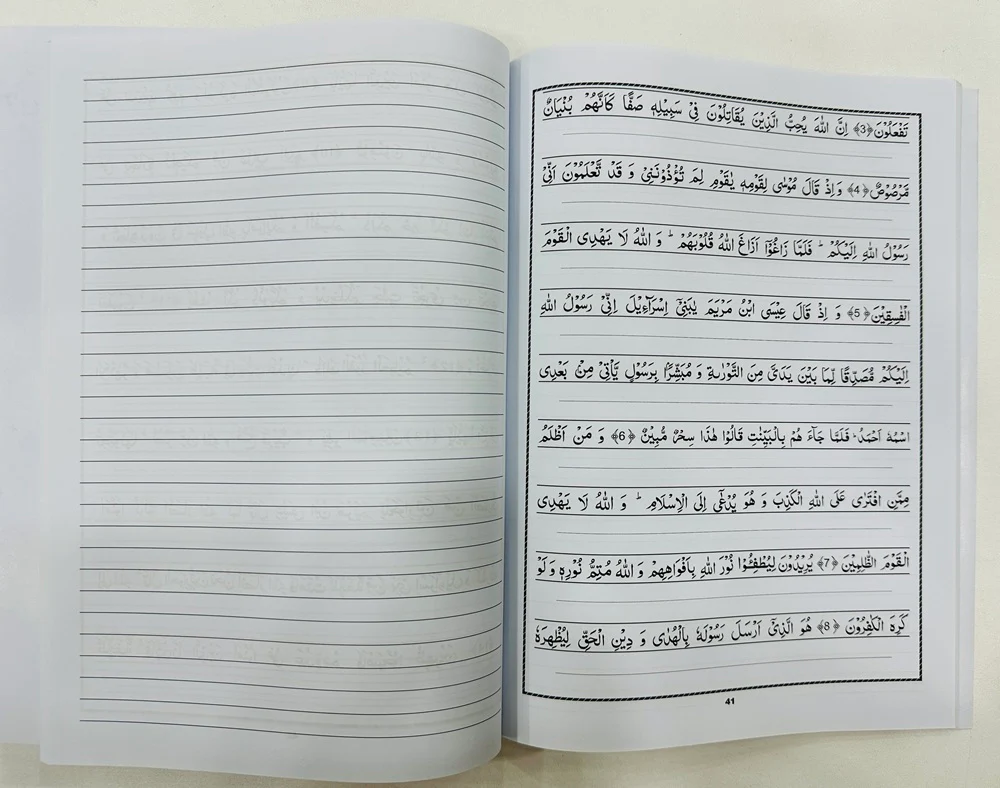 تَفْعَلُوْنَ﴿3﴾ اِنَّ اللّٰهَ يُحِبُّ الَّذِيْنَ يُقَاتِلُوْنَ فِىْ سَبِيْلِهٖ صَفًّا كَاَنَّهُمْ بُنْيَانٌ
مَّرْصُوْصٌ﴿4﴾ وَ اِذْ قَالَ مُوْسٰى لِقَوْمِهٖ يٰقَوْمِ لِمَ تُؤْذُوْنَنِىْ وَ قَدْ تَّعْلَمُوْنَ اَنِّىْ
رَسُوْلُ اللّٰهِ اِلَيْكُمْ ؕ فَلَمَّا زَاغُوْۤا اَزَاغَ اللّٰهُ قُلُوْبَهُمْ ؕ وَ اللّٰهُ لَا يَهْدِى الْقَوْمَ
الْفٰسِقِيْنَ﴿5﴾ وَ اِذْ قَالَ عِيْسَى ابْنُ مَرْيَمَ يٰبَنِىْۤ اِسْرَآءِيْلَ اِنِّىْ رَسُوْلُ اللّٰهِ
اِلَيْكُمْ مُّصَدِّقًا لِّمَا بَيْنَ يَدَىَّ مِنَ التَّوْرٰىةِ وَ مُبَشِّرًۢا بِرَسُوْلٍ يَّاْتِىْ مِنْۢ بَعْدِى
اسْمُهٗۤ اَحْمَدُ ؕ فَلَمَّا جَآءَ هُمْ بِالْبَيِّنٰتِ قَالُوْا هٰذَا سِحْرٌ مُّبِيْنٌ ﴿6﴾ وَ مَنْ اَظْلَمُ
مِمَّنِ افْتَرٰى عَلَى اللّٰهِ الْكَذِبَ وَ هُوَ يُدْعٰۤى اِلَى الْاِسْلَامِ ؕ وَ اللّٰهُ لَا يَهْدِى
الْقَوْمَ الظّٰلِمِيْنَ ﴿7﴾ يُرِيْدُوْنَ لِيُطْفِـُٔوْا نُوْرَ اللّٰهِ بِاَفْوَاهِهِمْ وَ اللّٰهُ مُتِمُّ نُوْرِهٖ وَ لَوْ
كَرِهَ الْكٰفِرُوْنَ ﴿8﴾ هُوَ الَّذِىْۤ اَرْسَلَ رَسُوْلَهٗ بِالْهُدٰى وَ دِيْنِ الْحَقِّ لِيُظْهِرَهٗ
41